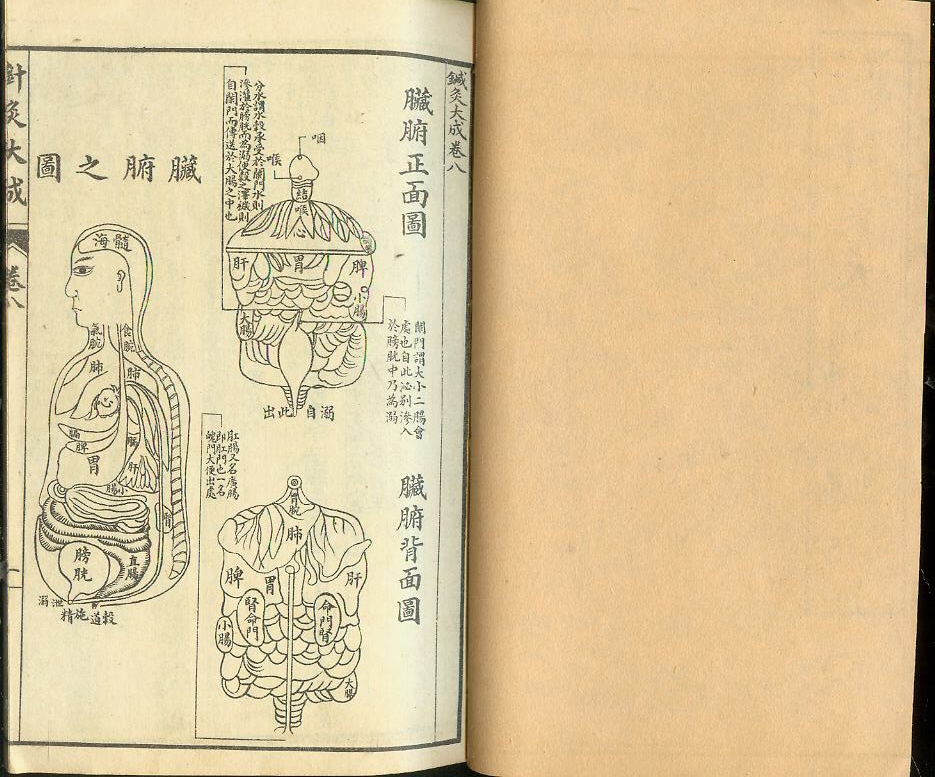 鍼灸大成卷八
臟腑正面圖
咽
喉
分水謂水穀承受於闌門水則
滲灌於膀胱而為溺便穀之滓穢則
自闌門而傳送於大腸之中也
結喉
心
肝
胃
脾
小腸
大腸
闌門謂大小二腸會
處也自此泌別滲入
於膀胱中乃為溺
溺自此出
臟腑背面圖
胃脘
肺
脾
胃
肝
腎命門
命門腎
小腸
大腸
肛腸又名廣腸
即肛門也一名
魄門大便出處
臟腑之圖
髓海
食脘
氣脘
肺
肺
膈
脾
胃
肝
小腸
腎
膀胱
直腸
溺泄
穀道
施精
針灸大成
卷八
一